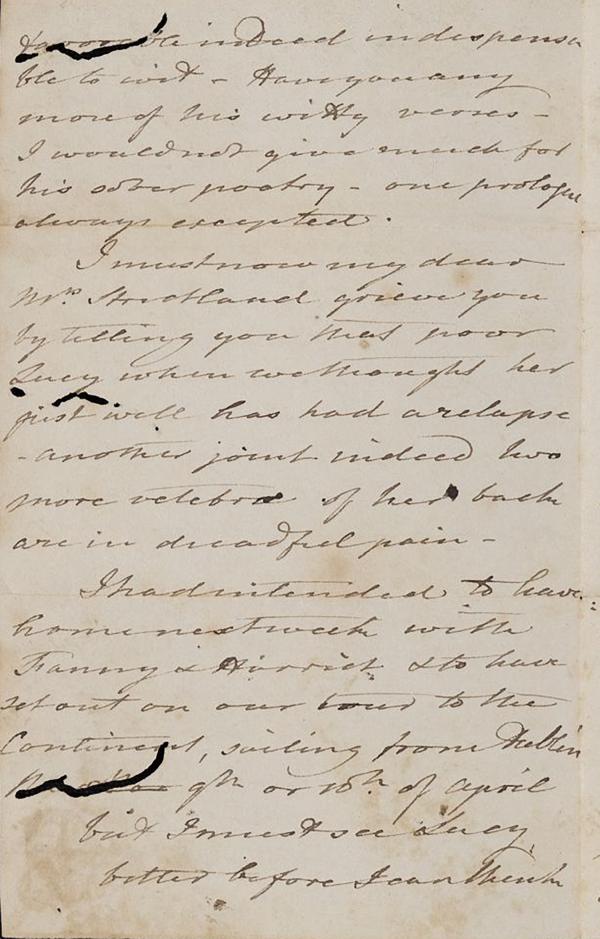 Favorable indeed indispensa
ble to wit - Have you any
more of his witty verses -
I would not give much for
his sober poetry - one prologue
always excepted.
I must now my dear
Mrs. Strickland grieve you
by telling you that poor
Lucy when we thought her
just well has had a relapse
- another joint indeed two
more vetebra of her back
are in dreadful pain -
I had intended to have
home next week with
Fanny & Harriet & to have
set out on our tour to the
Continent, sailing from Dublin
9th or 10th of April
but I must see Lucy
better before I can think